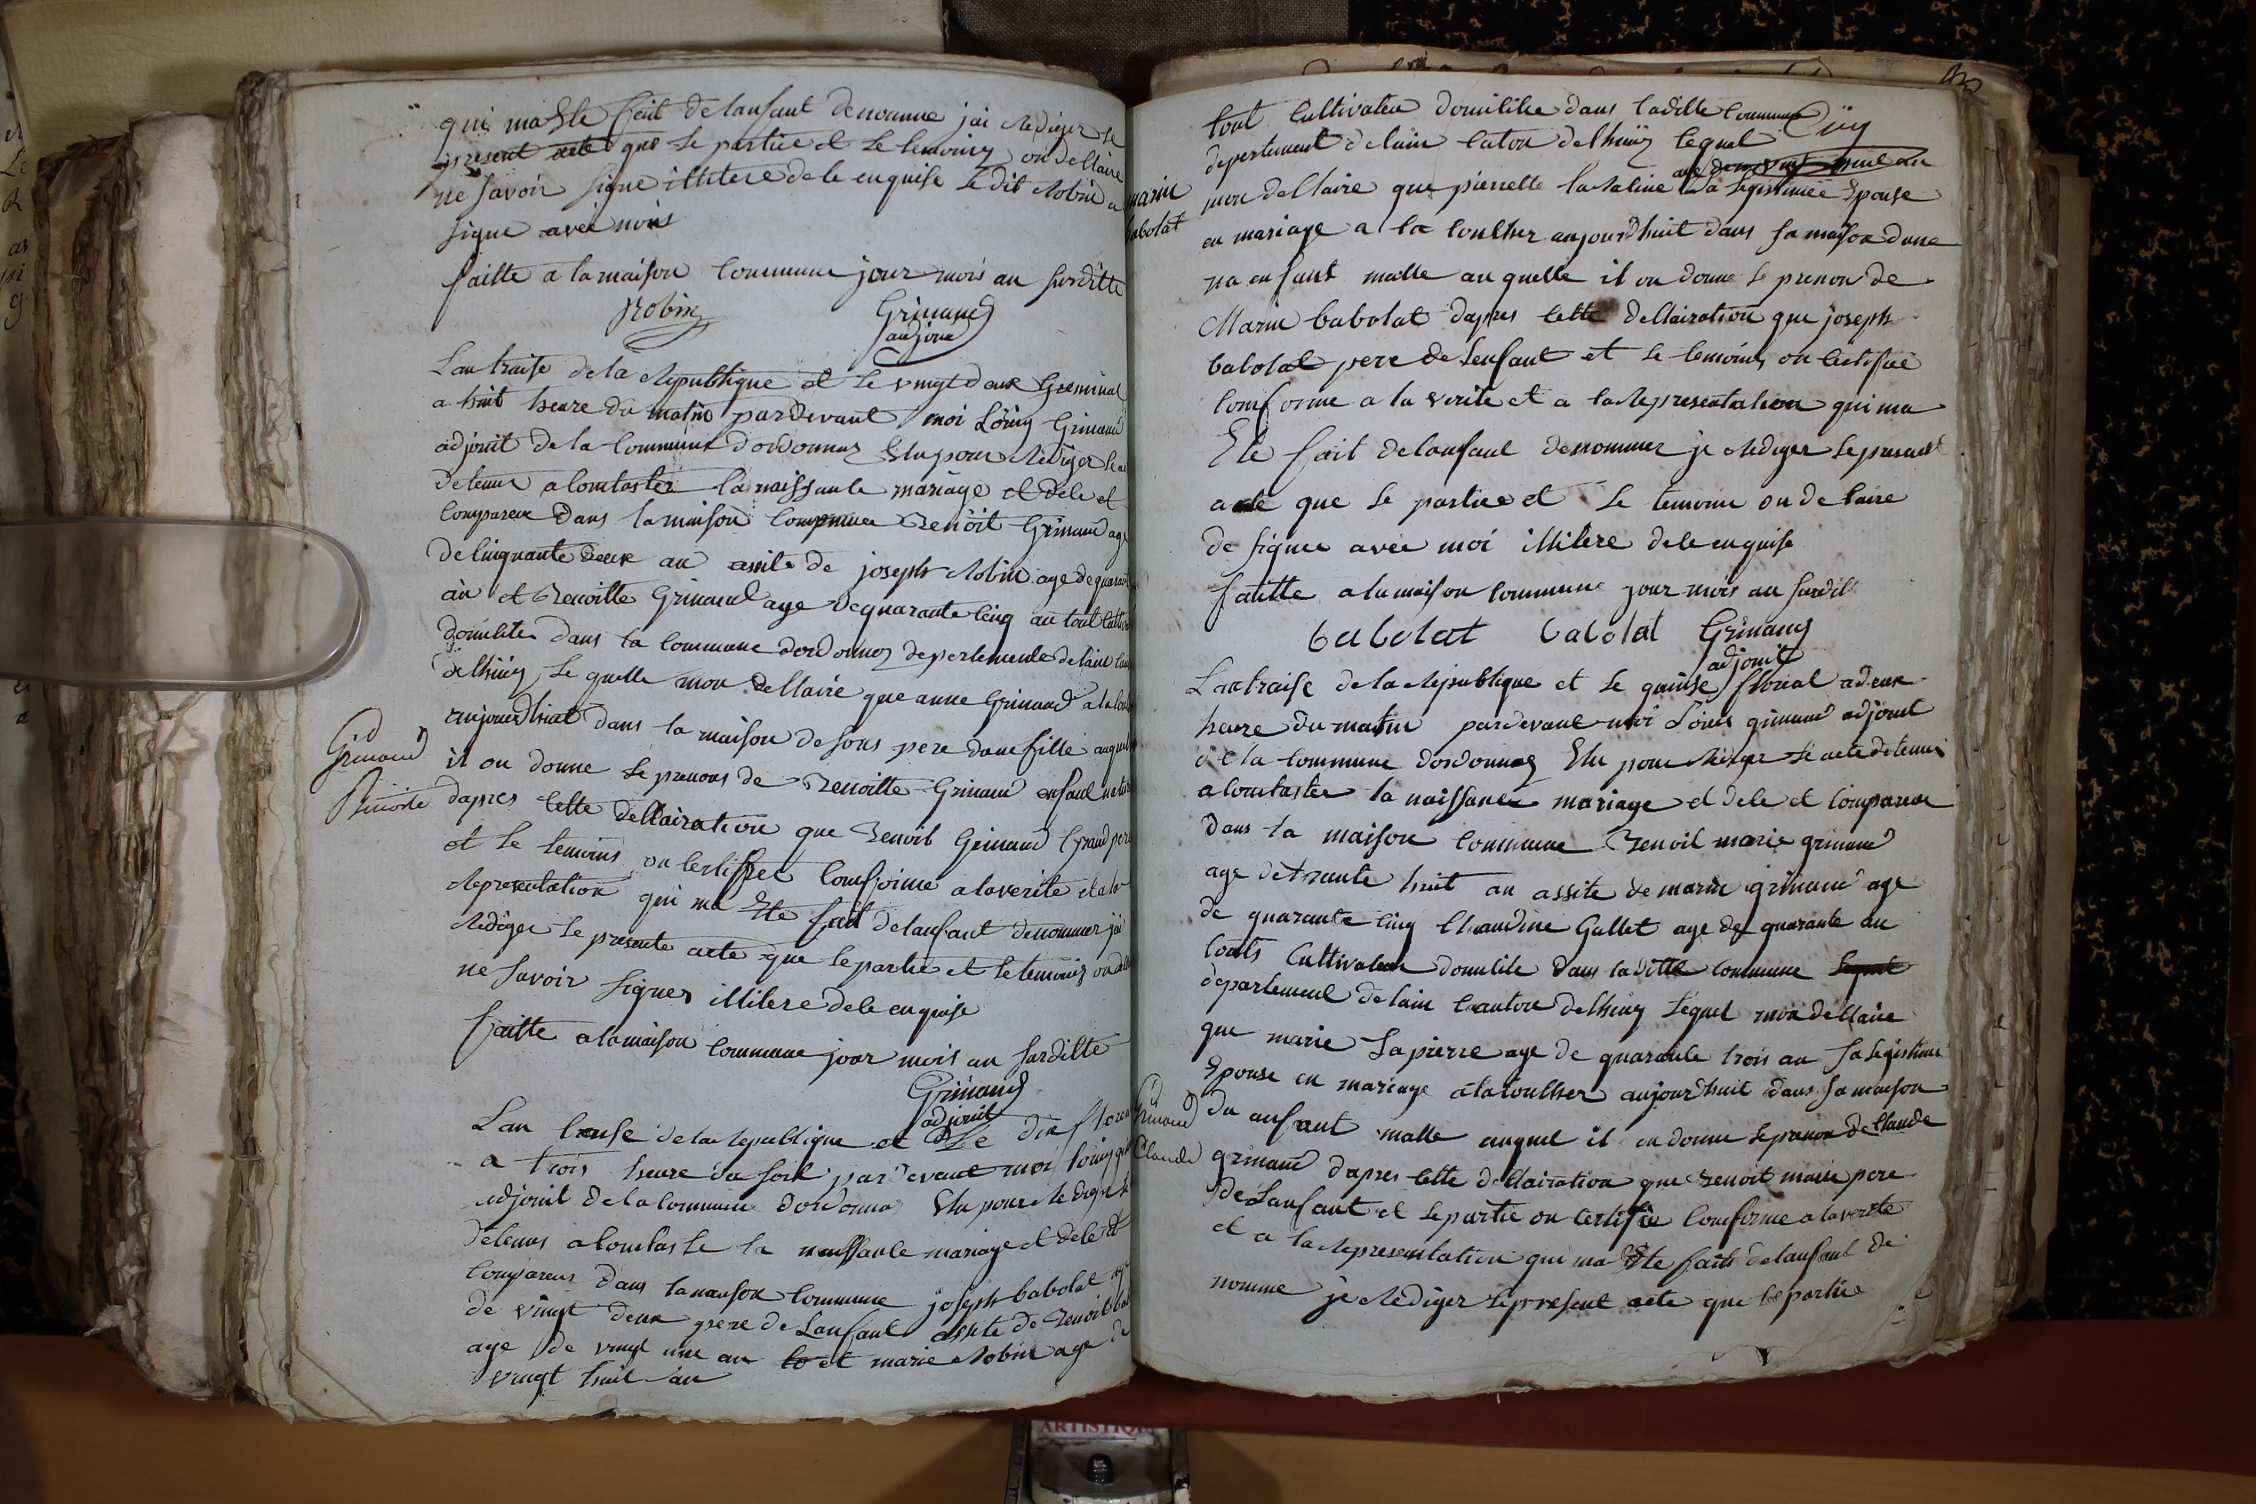 qui ma Ete fait de lanfant denomme jai Rediger le
present acte que le partiee et le temoing on dellaire
ne savoir signe illitere de le enquise le dit Robin a
signe avec mois
faitte a la maison commune jour mois an surditte
Robin Grinand
adjoint
Lan traise de la Republique et le vingt deux Germinal
a huit heure du matin pardevant moi Loüig Grinand
adjouit de la commune dordonnaz Elu pour Rediger le
detenus a lomtaster la naissante mariage et dele et
Compareue dans la maison commune Benoit Grinand age
de cinquante deux an assite de joseph Robin age de quarante
an et Benoitte Grinand age de quarante cinq an tout
domilite dans la commune dordonnaz departemente de lain
delhuis le quelle mon dellaire que anne Grinand a la
aujourdhuit dans la maison de sons pere dune fille auquel
Grinand
Benoite
il on donne le prenons de Benoitte Grinand enfant
dapres cette dellairation que Benoit Grinand Grand pere
et le temoins on certiffiet comforme a la verite et a la
Representation qui ma Ete fait de lanfant denommer jai
Rediger le presente acte que le partie et le temoing on
ne savoir signer illitere dele enquise
faitte a la maison commune jour mois an sarditte
Grinand
adjouit
Lan traise de la Republique et le dix floreal
a trois heure du soir pardevant moi Louig
adjouit de la commune dordonna Elu pour Rediger le
detenus a lomtaste la naissante mariage et dele et
Compareus dans la maison commune joseph babolat age
de vingt deux pere de lanfant assite de Benoit
age de vingt une an et marie Robin age de
vingt huit an
tout cultivateu domilitie dans ladille commune
departement de lain caton delhuis lequel
marin
babolat
mon dellaire que pierrette la Saline sa legistimee Epouse
en mariage a la coulher aujourdhuit dans sa maison dune
na enfant malle au quelle il on donne le prenon de
Marin babolat dapres cette dellairation que joseph
babolat pere de lenfant et le temoins on certifie
comforme a la verite et a la Representation qui ma
Ete fait de lanfant denommer je Rediger le present
acte que le partiee et le temoin on delaire
de signer avec moi illitere dele enquise
faitte a la maison commune jour mois an sardit
babolat babolat Grinand
adjouit
Lan traise de la Republique et le quinse florial a deux
heure du matin pardevant moi Louis grinand adjouit
de la commune dordonnaz Elu pour Rediger le acte detenus
a lomtaster la naissance mariage et dele et comparene
dans la maison commune Benoit marie grinand
age de trante huit an assite de marin grinand age
de quarante cinq Claudine Gallet age de quarante an
touts Cultivateur domilite dans laditte commune
departement de lain canton delhuig lequel mon dellaire
que marie Lapierre age de quarante trois an sa legistime
Epouse en mariage a la coulher aujourdhuit dans sa maison
Grinand
Claude
du anfant malle auquel il on donne le prenon de Claude
grinand dapres cette dellairation que Benoit marie pere
de lanfant et le partie on certifie comforme a la verite
et a la Representation qui ma Ete faits de lanfant de
nomme je Rediger le present acte que le partie